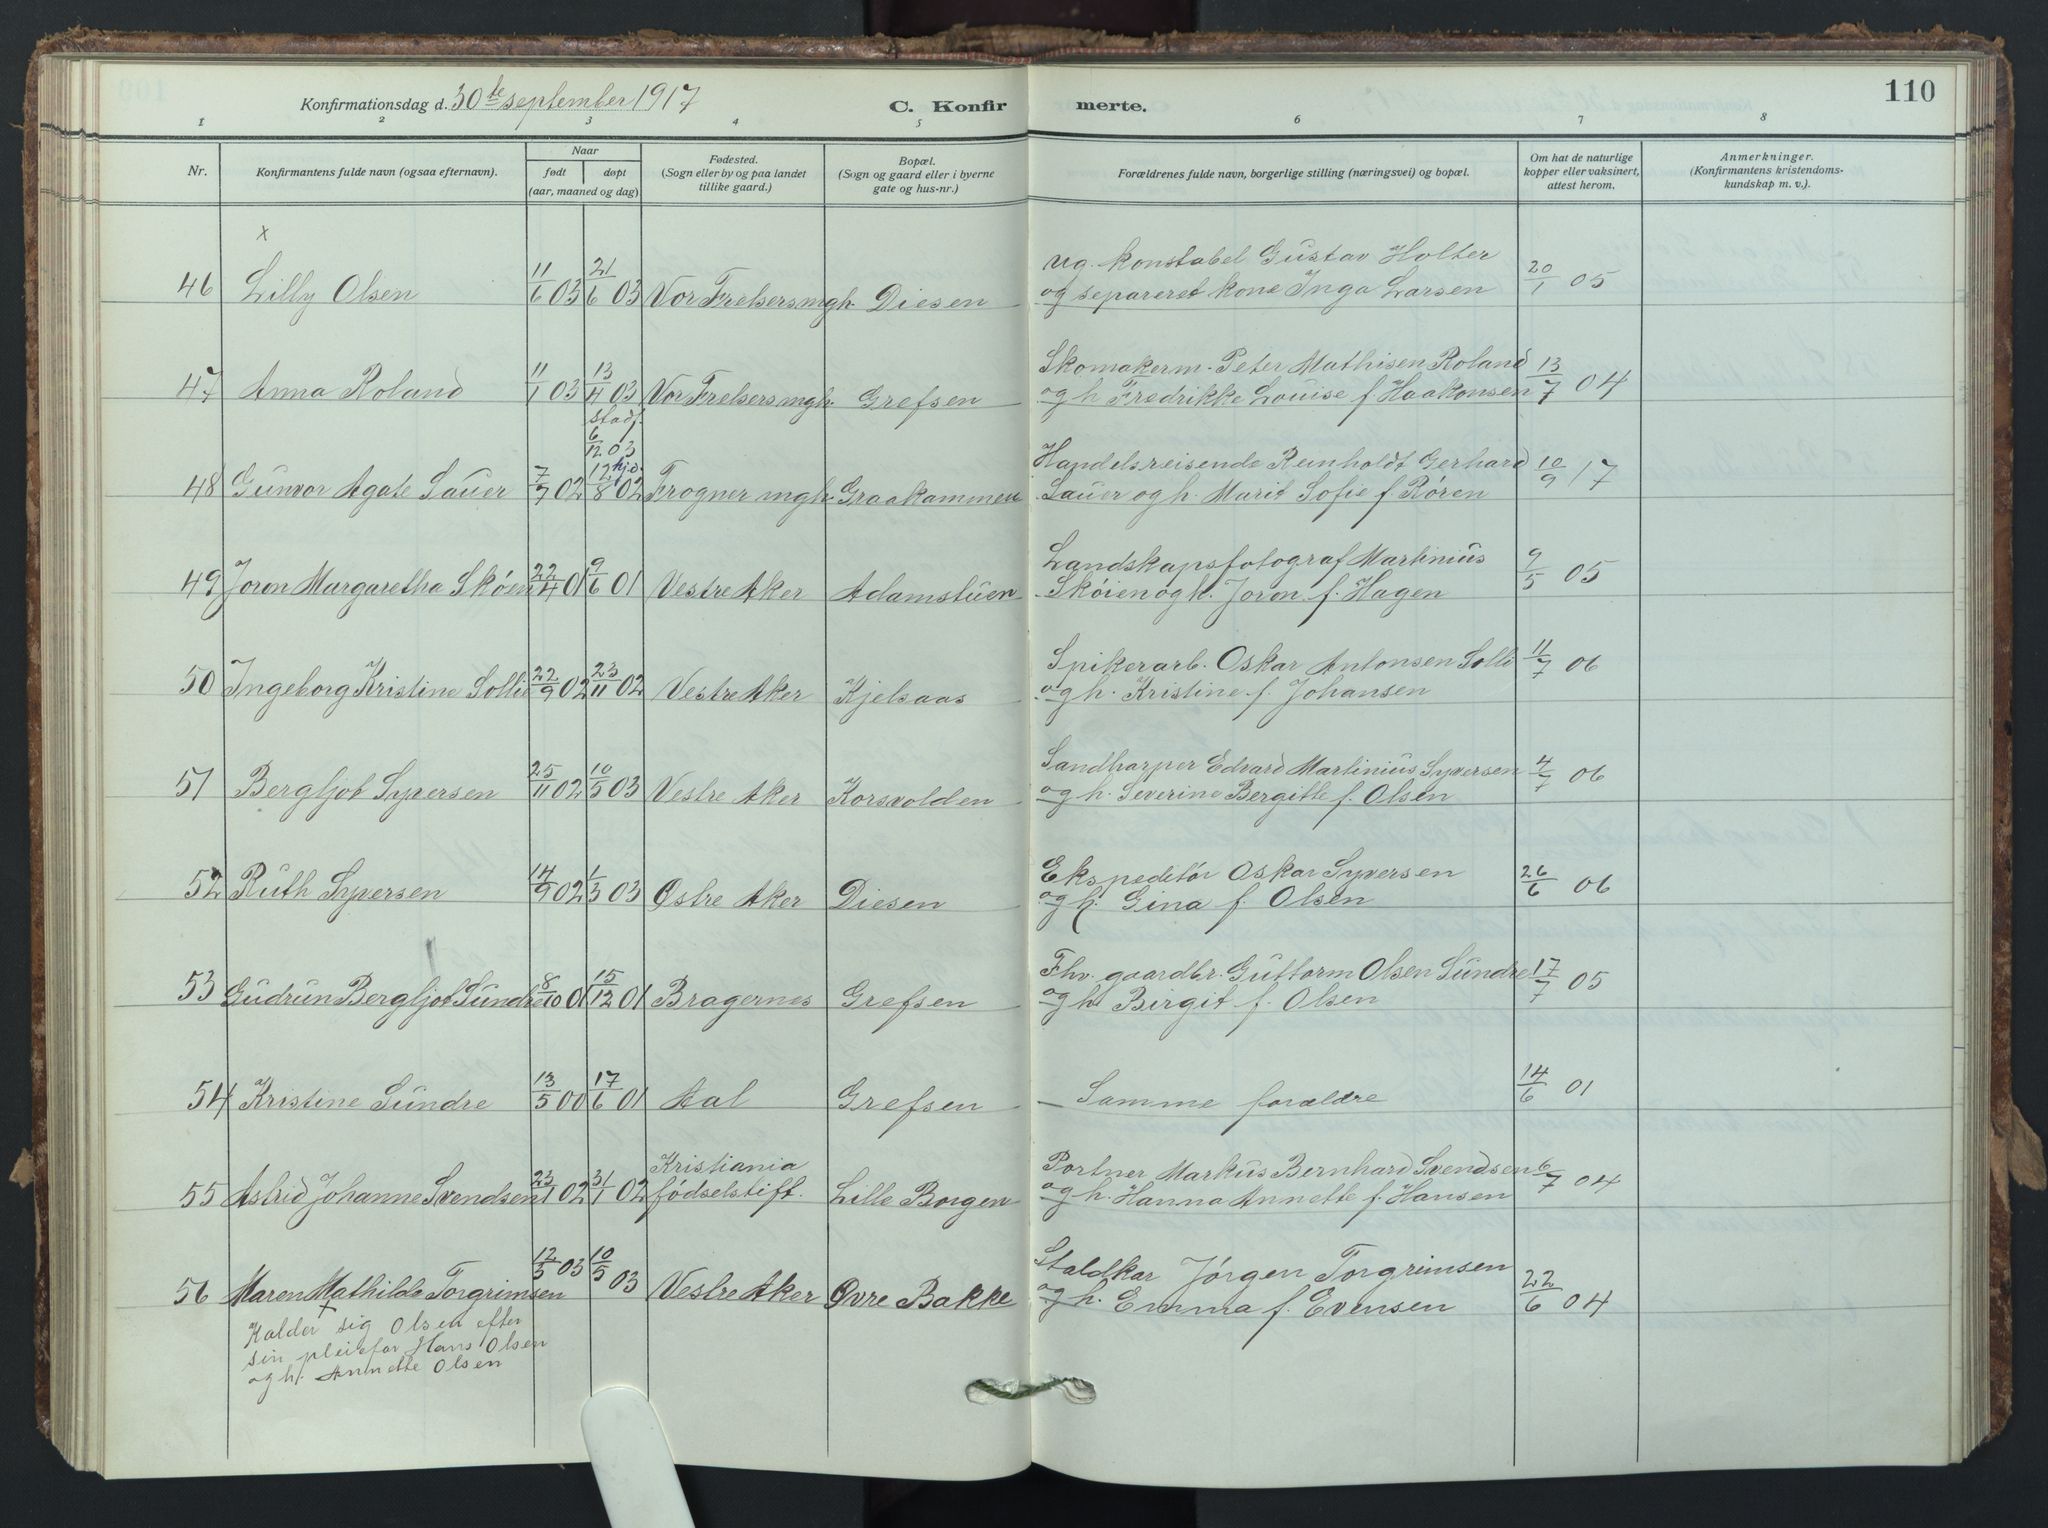 110
Konfirmationsdag d. 30te september 1917
C. Konfir merte.
1 2 3 4 5 6 7 8
Nr.
Konfirmantens fulde navn (ogsaa efternavn).
Naar
født døpt
(aar, maaned og dag)
Fødested.
(Sogn eller by og paa landet
tillike gaard.)
Bopæl.
(Sogn og gaard eller i byerne
gate og hus-nr.)
Forældrenes fulde navn, borgerlige stilling (næringsvei) og bopæl.
Om hat de naturlige
kopper eller vaksinert,
attest herom.
Anmerkninger.
(Konfirmantens kristendoms-
kundskap m. v.)
x
ug. konstabel Gustav Holter
46 Lilly Olsen 11/6 03 21/6 03 Vor Frelsersmgh. Diesen og separeret kone Inga Larsen 20/1 05
Skomakerm. Peter Mathisen Roland
47 Anna Roland 11/1 03 13/4 03 Vor Frelsers mgh. Grefsen og h. Fredrikke Louise f. Haakonsen 13/7 04
stadf.
6/12 03
hjd.
Handelsreisende Reinholdt Gerhard
48 Gunvor Agate Sauer 7/7 02 12/8 02 Frogner mgh. Graakammen Sauer og h. Marit Sofie f. Røren 10/9 17
Landskapsfotograf Martinius
49 Joron Margaretha Skøien 22/4 01 9/6 01 Vestre Aker Adamstuen Skøien og h. Joron f. Hagen 9/5 05
Spikerarb. Oskar Antonsen Solli
50 Ingeborg Kristine Sollie 22/9 02 23/11 02 Vestre Aker Kjelsaas og h. Kristine f. Johansen 11/7 06
Sandharper Edvard Martinius Syversen
51 Bergljot Syversen 25/11 02 10/5 03 Vestre Aker Korsvolden og h. Severine Bergitte f. Olsen 4/7 06
Ekspeditør Oskar Syversen
52 Ruth Syversen 14/9 02 1/3 03 Østre Aker Diesen og h. Gina f. Olsen 26/6 06
Fhv. gaardbr. Guttorm Olsen Sundre
53 Gudrun Bergljot Sundre 8/10 01 15/12 01 Bragernes Grefsen og h. Birgit f. Olsen 17/7 05
54 Kristine Sundre 13/5 00 17/6 01 Aal Grefsen Samme forældre 14/6 01
Kristiania
Portner Markus Bernhard Svendsen
55 Astrid Johanne Svendsen 23/1 02 31/1 02 fødselstift. Lille Borgen og h. Hanna Annette f. Hansen 6/7 04
Staldkar Jørgen Torgrimsen
56 Maren Mathilde Torgrimsen 12/3 03 10/5 03 Vestre Aker Øvre Bakke og h. Emma f. Evensen 22/6 04
x
Kalder sig Olsen efter
sin pleiefar Hans Olsen
og h. Annette Olsen